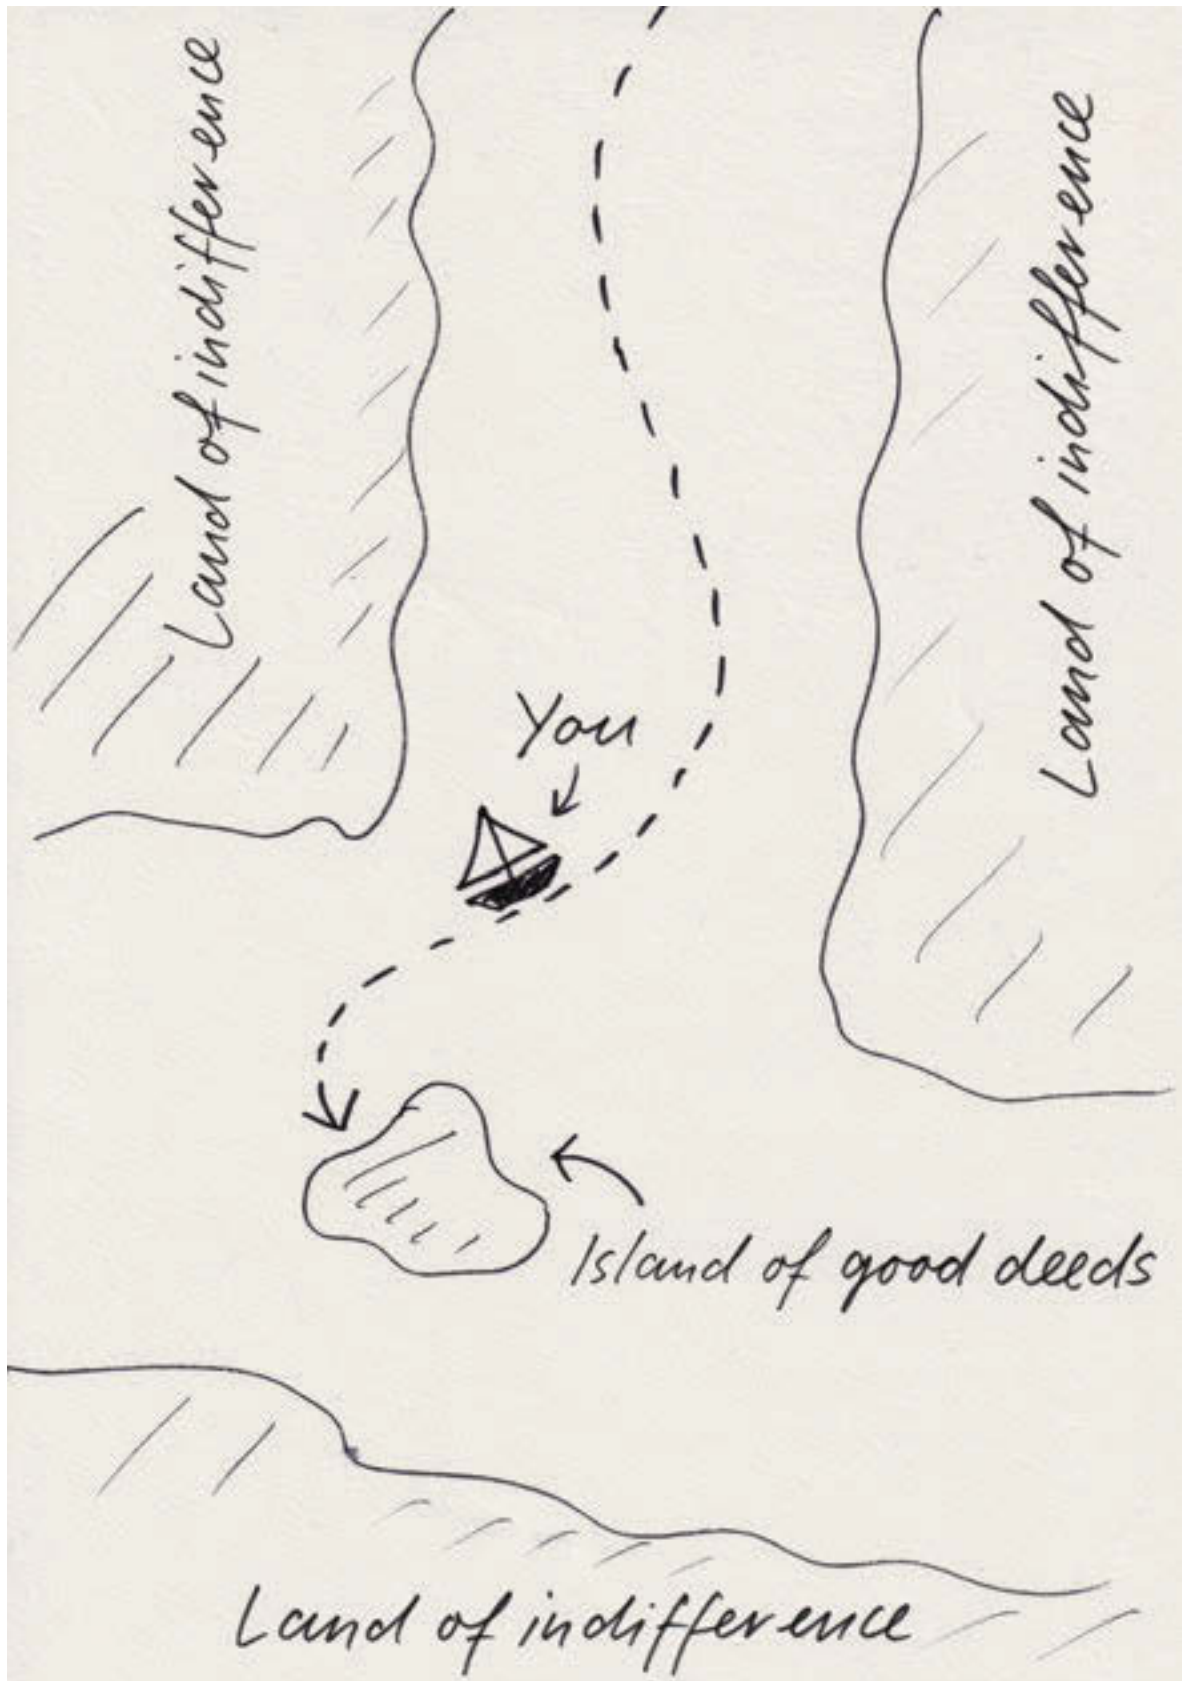 Land of indifference
Land of indifference
You
Island of good deeds
Land of indifference